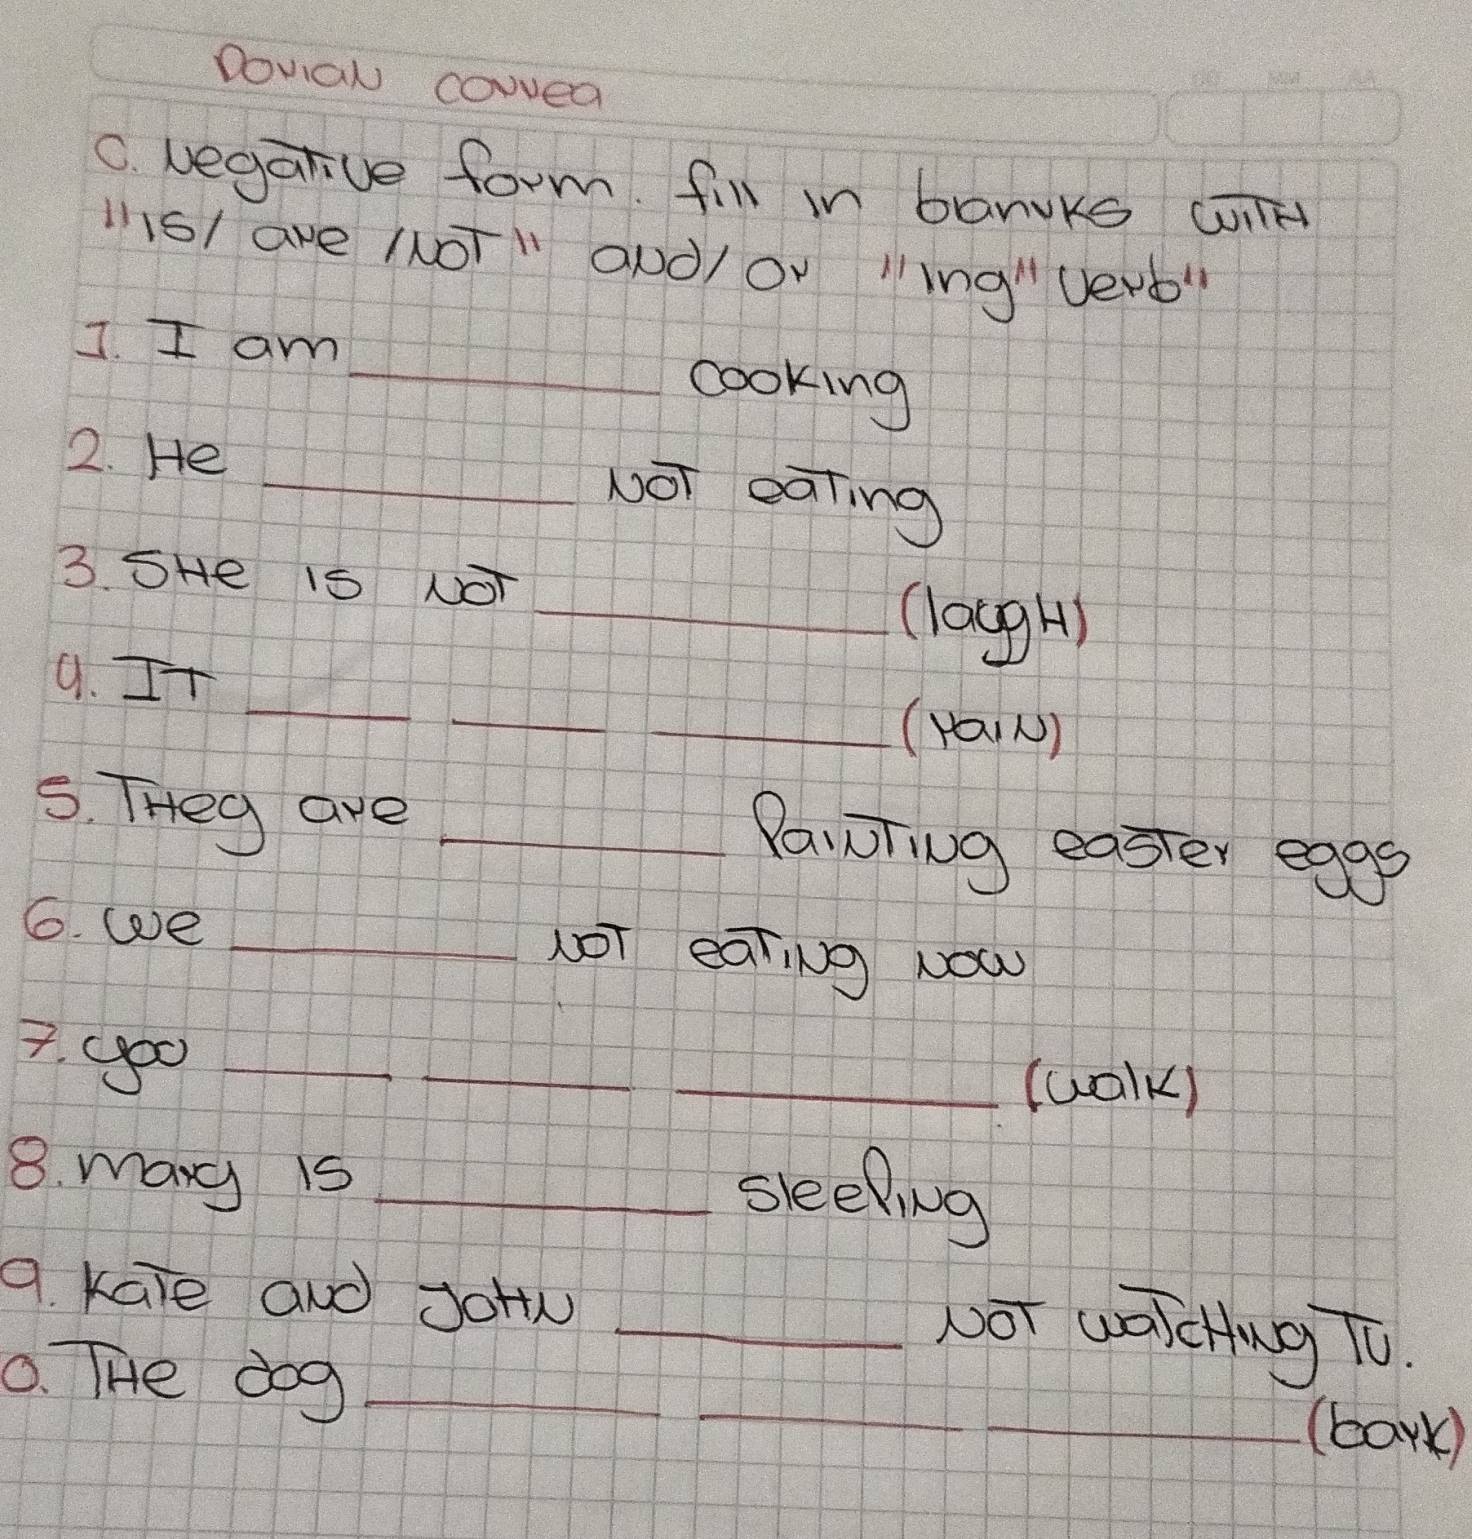 Dorian correa
C. Negative form. fill in blanks with
"is/ are /Not" and/or "ing" verb"
1. I am ________ cooking
2. He ________ Not eating
3. She is Not ________ (laugh)
4. It ____ ____ ______ (rain)
5. They are ________ Painting easter eggs
6. we ________ not eating now
7. you ____ ____ ________ (walk)
8. mary is ________ sleeping
9. Kate and John ________ Not watching Tv.
0. The dog ________ ________ ________ (bark)